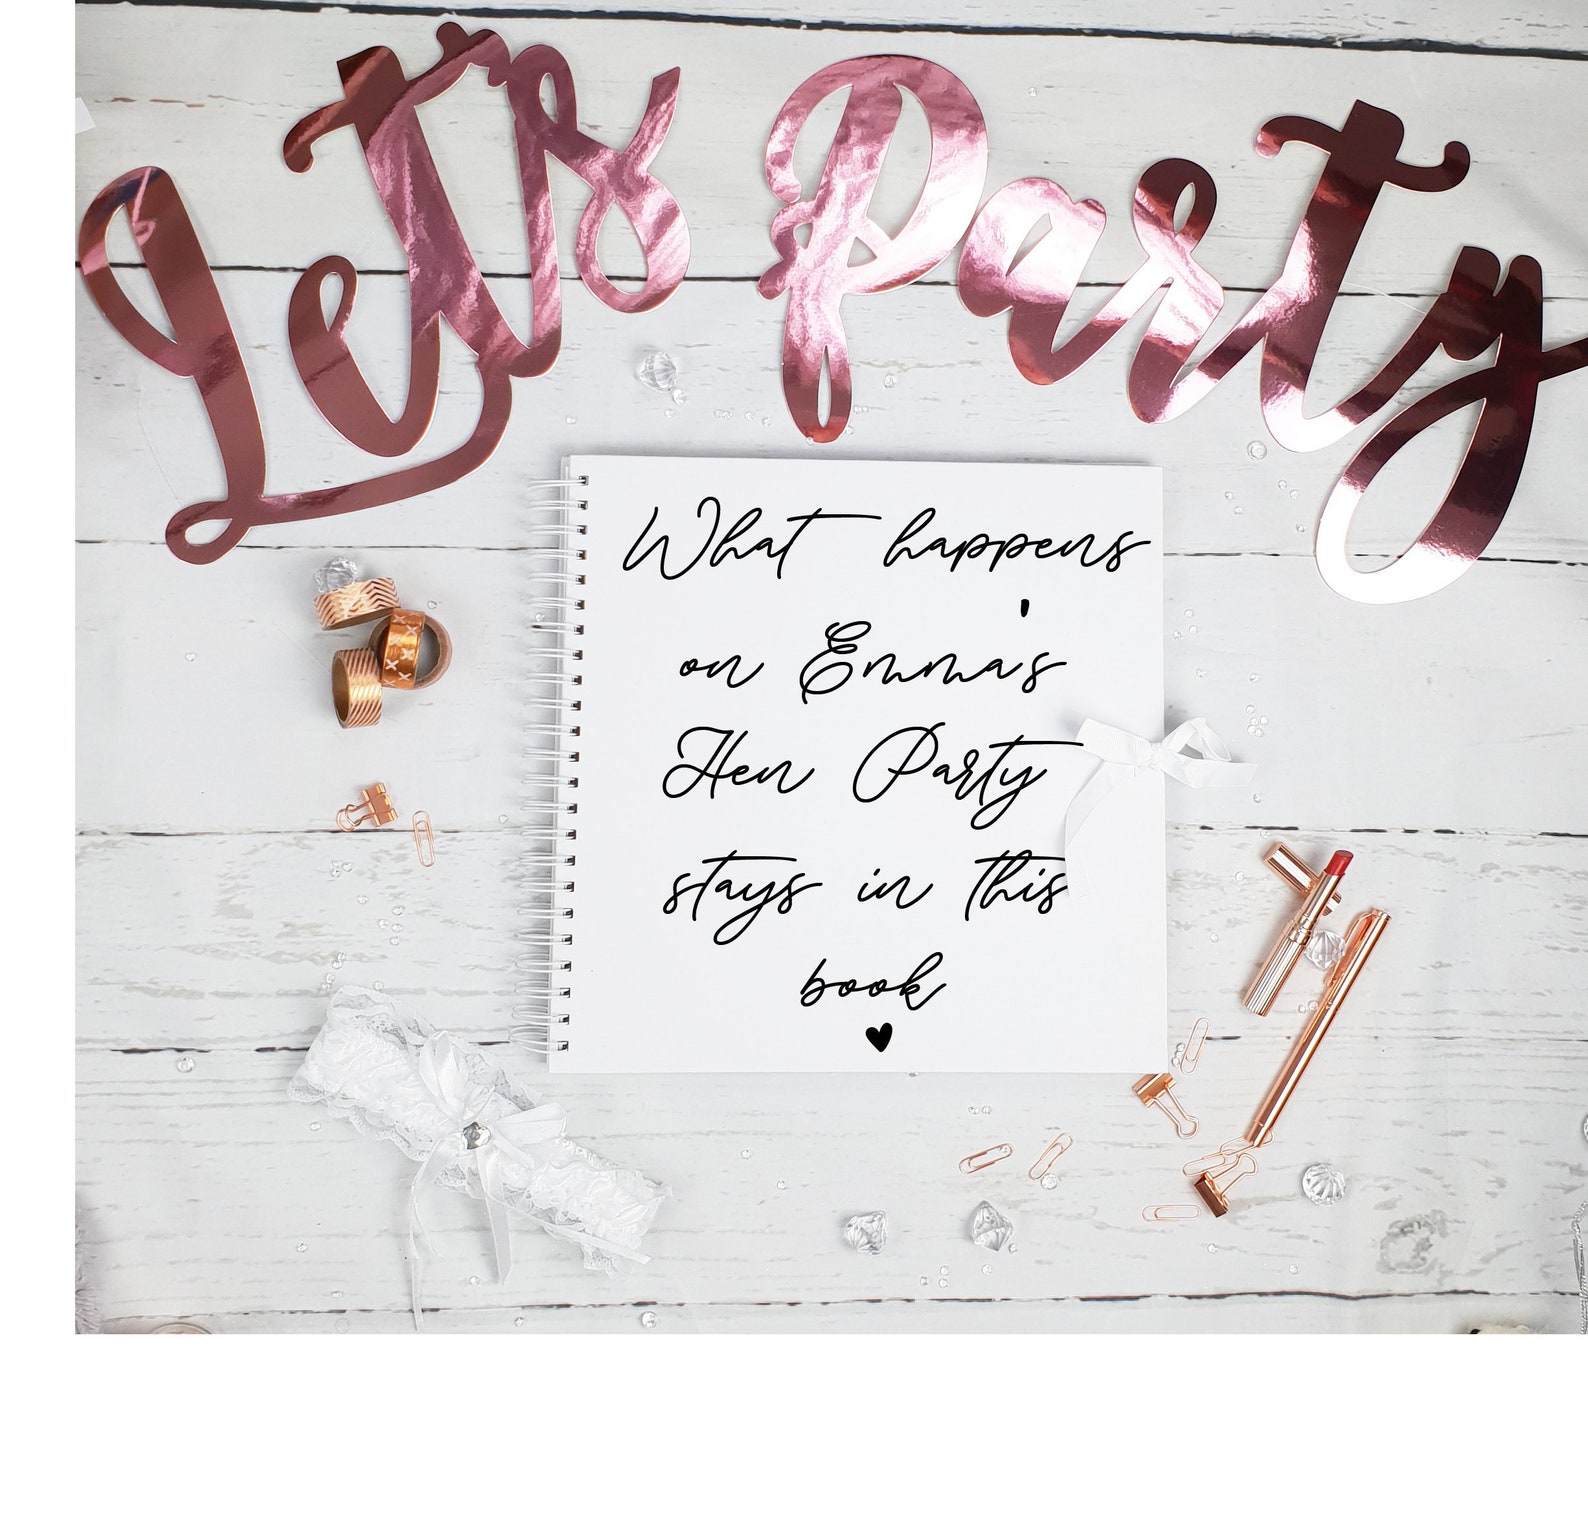 Let's Party
What happens
on Emma's
Hen Party
stays in this
book